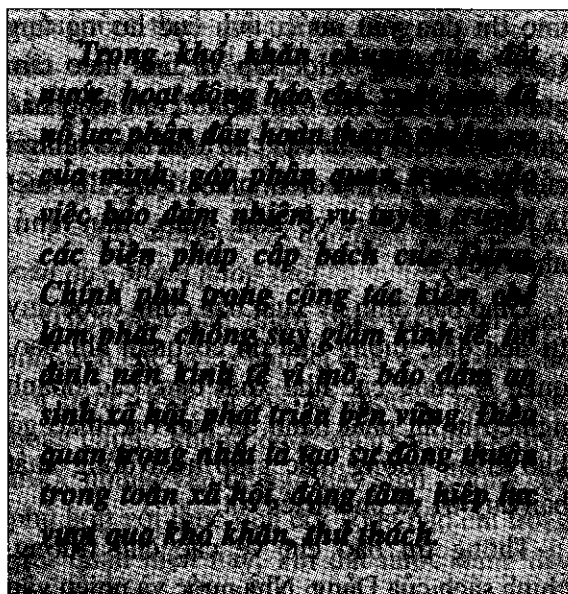 Trong khó khăn chung của đất
nước, hoạt động báo chí, xuất bản đã
nỗ lực phấn đấu hoàn thành
của mình, góp phần quan trọng vào
việc bảo đảm nhiệm vụ tuyên truyền
các biện pháp cấp bách của Đảng,
Chính phủ trong công tác kiềm chế
lạm phát, chống suy giảm kinh tế, ổn
định nền kinh tế vĩ mô, bảo đảm an
sinh xã hội, phát triển bền vững. Điều
quan trọng nhất là tạo sự đồng thuận
trong toàn xã hội, đồng tâm, hiệp lực
vượt qua khó khăn, thử thách.